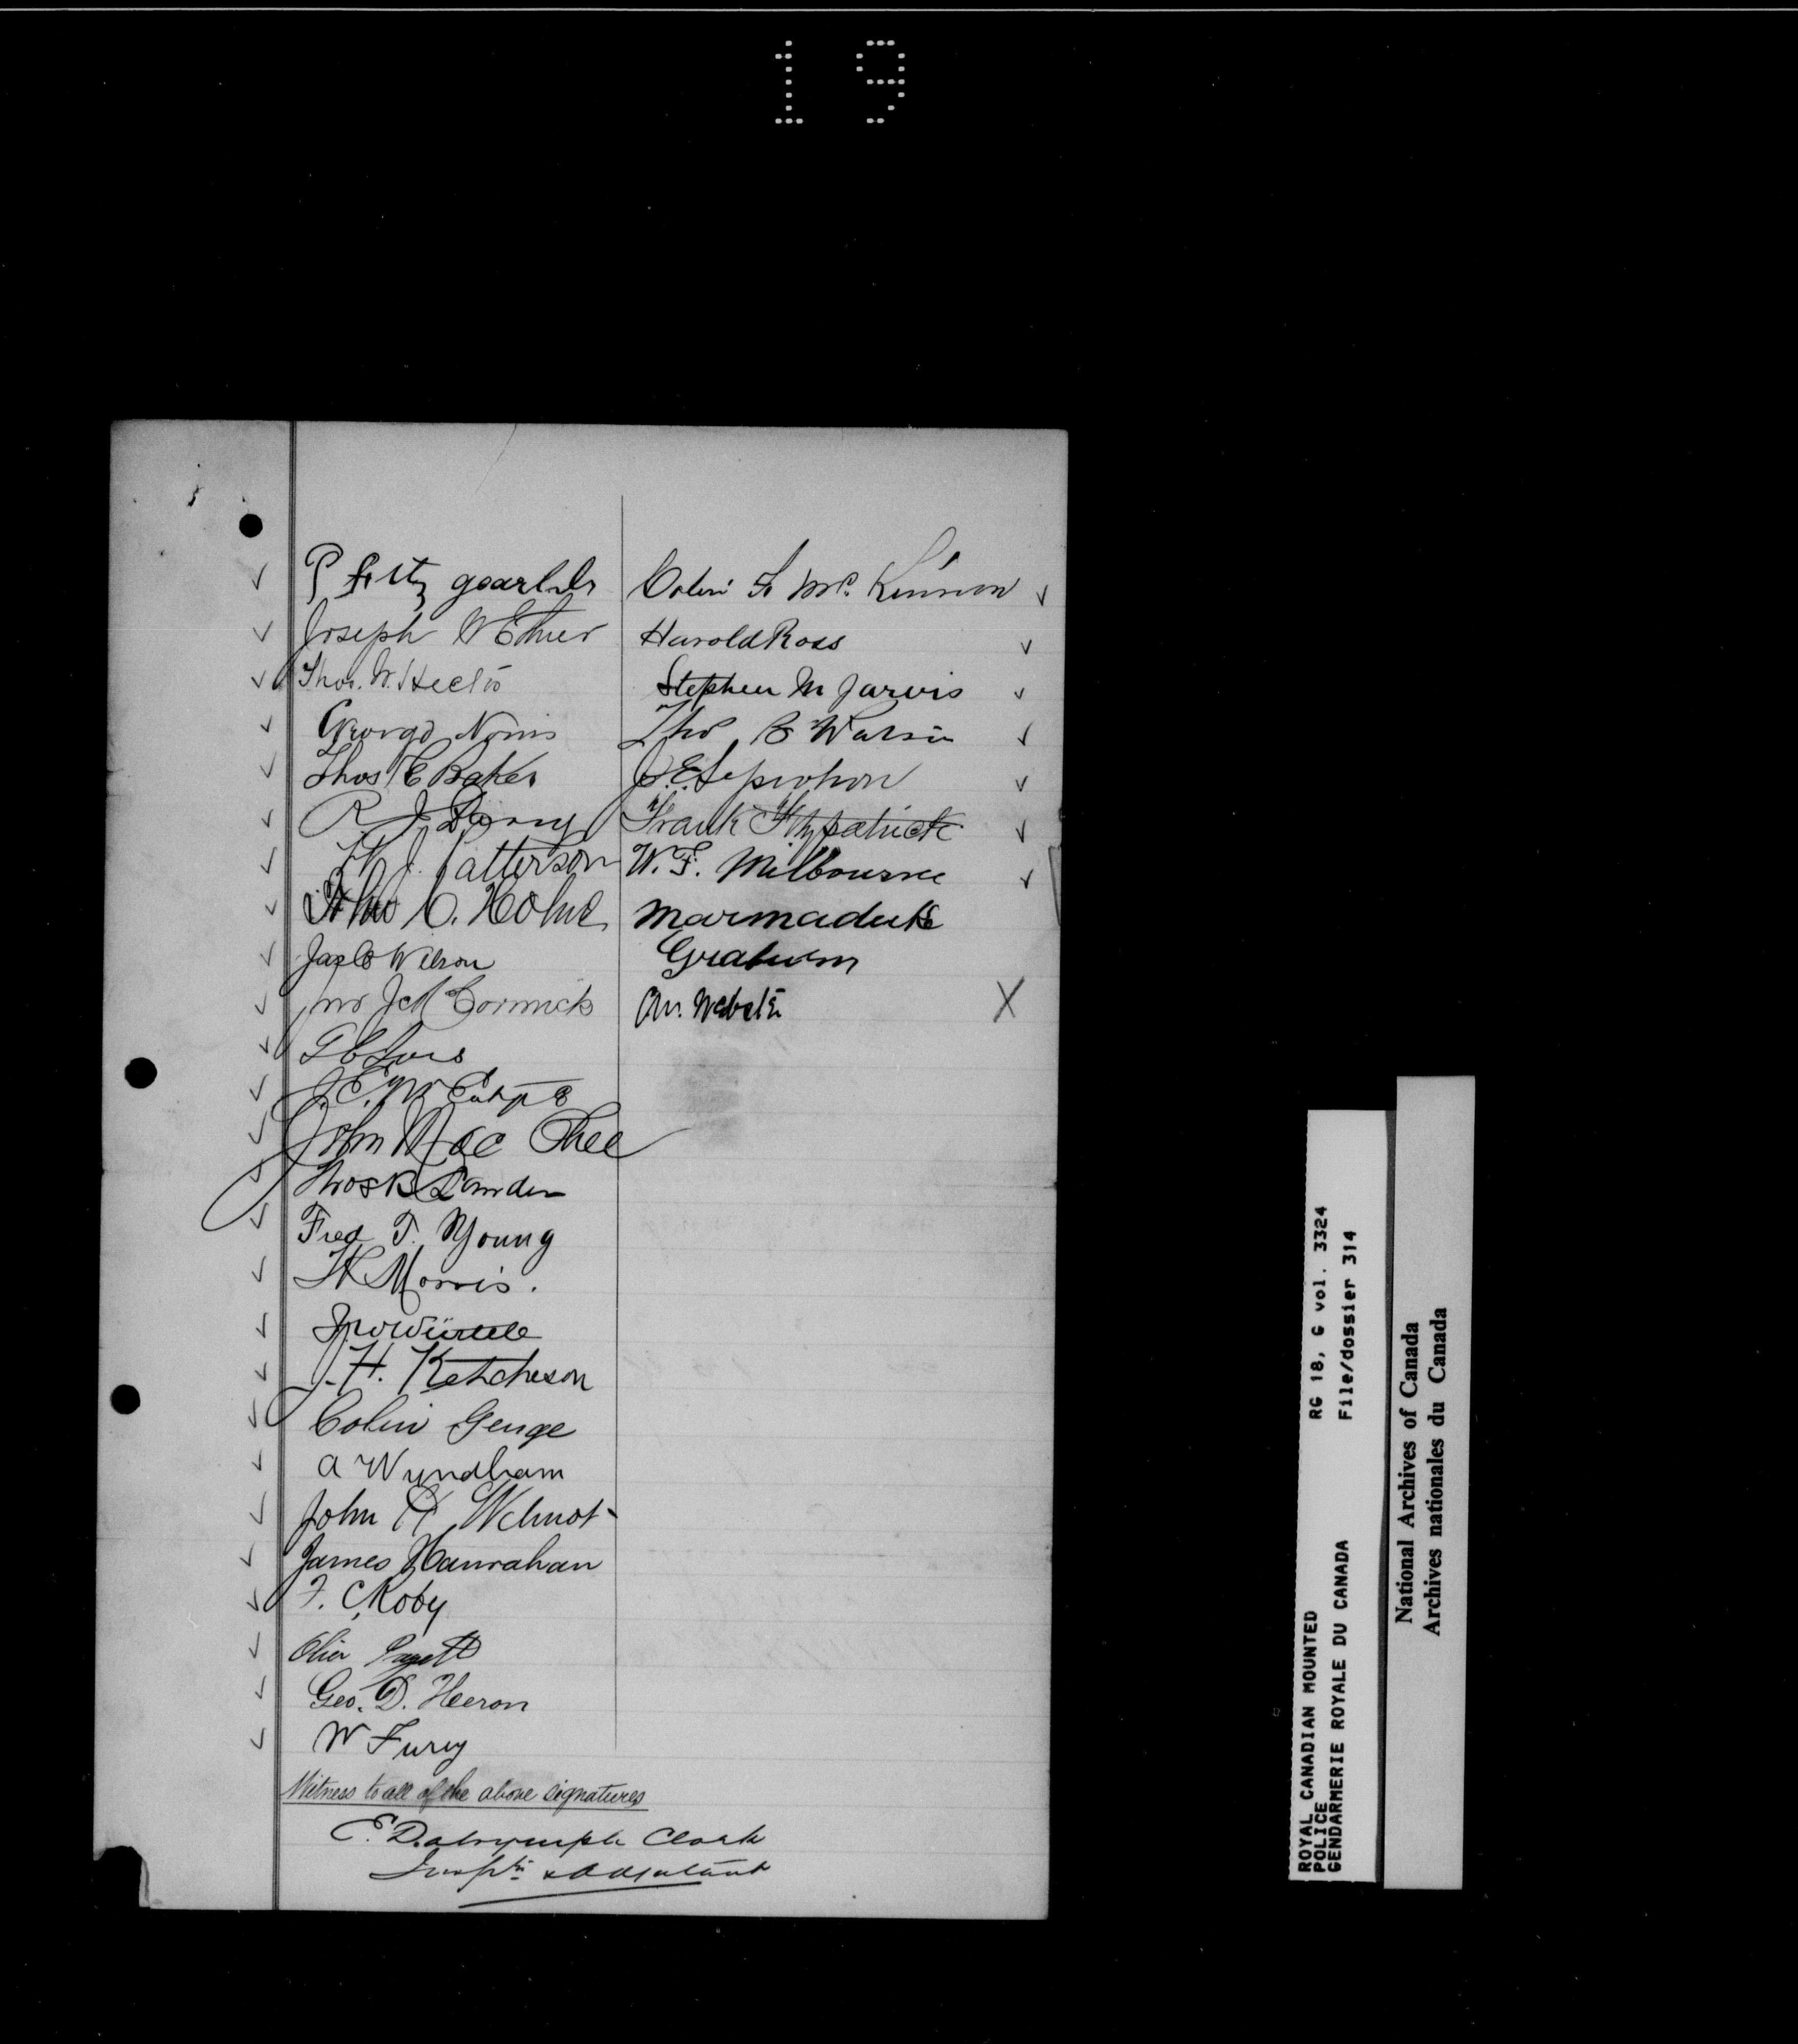 19
P fitz gearlds
Joseph W Ethier
Thos. W. Hector
George Norris
Thos C Baker
R. J.
H J. Patterson
C. Holme
Jas B Wilson
Jno J McCormick
John Mac Phee
Thos B Lauder
Fred T. Young
H Morris.
Jno Würtele
J. H. Ketcheson
Colin Genge
A Wyndham
John A Wilmot
James Hanrahan
F. C Roby
Olier Pagett
Geo. D. Heron
W Fury
Colin F McKinnon
Harold Ross
Stephen M Jarvis
Tho B Watson
J. E. Leprohon
Frank Fitzpatrick
W. F. Milbourne
Marmaduke
Graham
Webster
X
Witness to all of the above signatures
E. Dalrymple Clark
Inspr & Adjutant
ROYAL CANADIAN MOUNTED
POLICE
GENDARMERIE ROYALE DU CANADA
RG 18, G vol. 3324
File/dossier 314
National Archives of Canada
Archives nationales du Canada